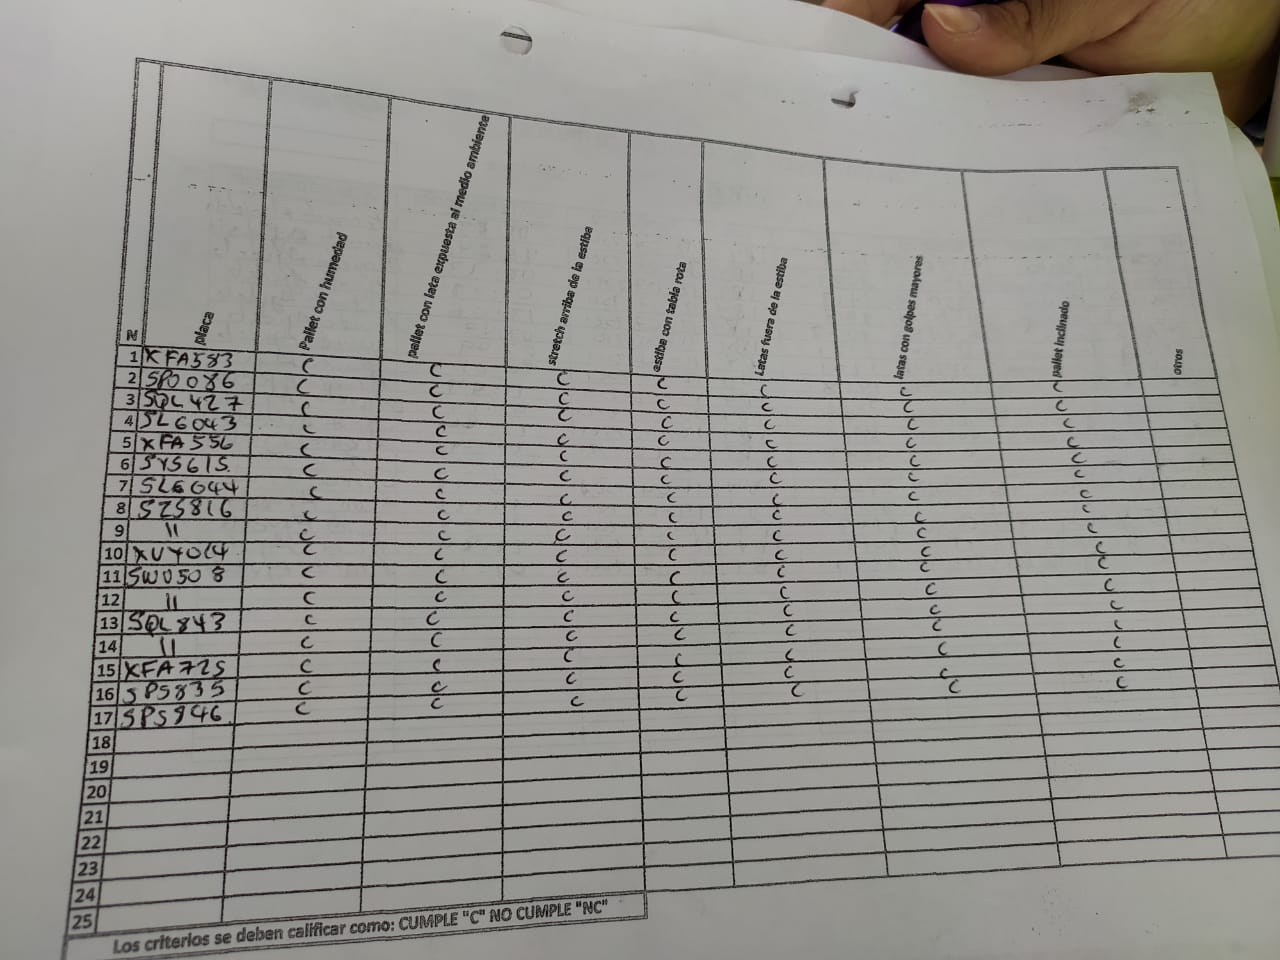 Nº placa Pallet con humedad pallet con lata expuesta al medio ambiente stretch arriba de la estiba estiba con tabla rota Latas fuera de la estiba latas con golpes mayores pallet inclinado otros
1 XFA583 C C C C C C C
2 SPO086 C C C C C C C
3 SQL427 C C C C C C C
4 SL6043 C C C C C C C
5 XFA556 C C C C C C C
6 SYS615 C C C C C C C
7 SL6044 C C C C C C C
8 SZS816 C C C C C C C
9 " C C C C C C C
10 XVY014 C C C C C C C
11 SWO508 C C C C C C C
12 " C C C C C C C
13 SQL843 C C C C C C C
14 " C C C C C C C
15 XFA725 C C C C C C C
16 SPS835 C C C C C C C
17 SPS946 C C C C C C C
18
19
20
21
22
23
24
25
Los criterios se deben calificar como: CUMPLE "C" NO CUMPLE "NC"